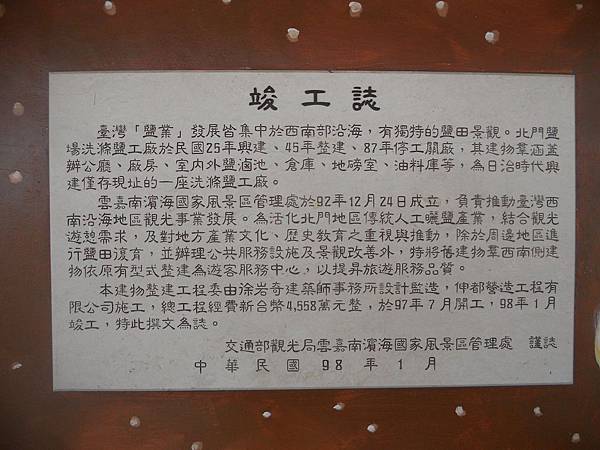 竣工誌
臺灣「鹽業」發展皆集中於西南部沿海，有獨特的鹽田景觀。北門鹽
場洗滌鹽工廠於民國25年興建、45年整建、87年停工關廠，其建物羣涵蓋
辦公廳、廠房、室內外鹽滷池、倉庫、地磅室、油料庫等，為日治時代興
建僅存現址的一座洗滌鹽工廠。
雲嘉南濱海國家風景區管理處於92年12月24日成立，負責推動臺灣西
南沿海地區觀光事業發展。為活化北門地區傳統人工曬鹽產業，結合觀光
遊憩需求，及對地方產業文化、歷史教育之重視與推動，除於周邊地區進
行鹽田復育，並辦理公共服務設施及景觀改善外，特將舊建物羣西南側建
物依原有型式整建為遊客服務中心，以提昇旅遊服務品質。
本建物整建工程委由徐岩奇建築師事務所設計監造，伸都營造工程有
限公司施工，總工程經費新台幣4,558萬元整，於97年7月開工，98年1月
竣工，特此撰文為誌。
交通部觀光局雲嘉南濱海國家風景區管理處 謹誌
中華民國98年1月